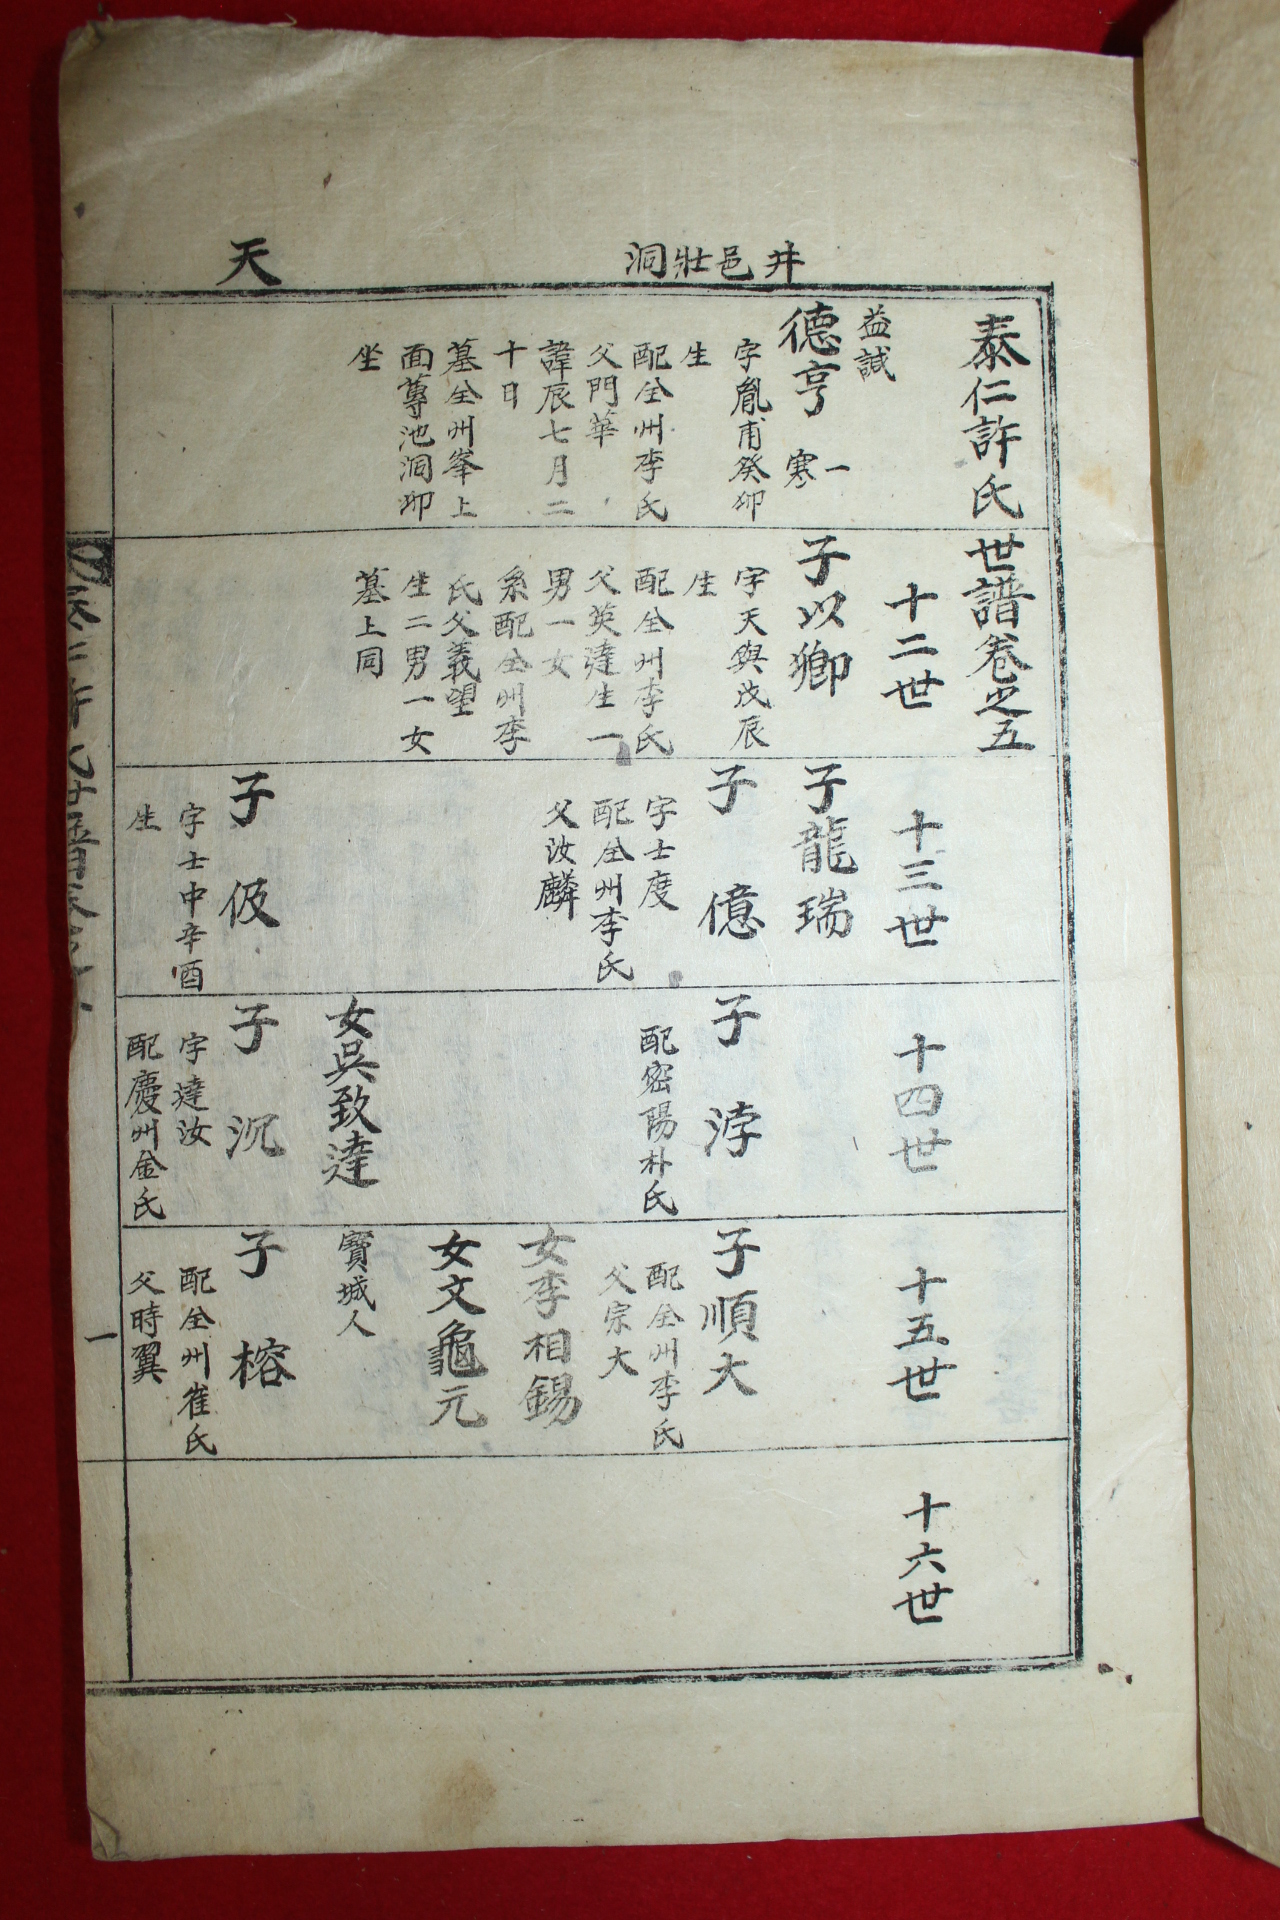 井邑壯洞
天
泰仁許氏世譜卷之五
十二世
十三世
十四世
十五世
十六世
益諴
德亨
一寒
字胤甫癸卯
生
配全州李氏
父門華
諱辰七月二
十日
墓全州峯上
面蓴池洞卯
坐
子以卿
字天與戊辰
生
配全州李氏
父英達生一
男一女
系配全州李
氏父義望
生二男一女
墓上同
子龍瑞
子億
字士度
配全州李氏
父汝麟
子伋
字士中辛酉
生
子浡
配密陽朴氏
女吳致達
子沉
字達汝
配慶州金氏
子順大
配全州李氏
父宗大
女李相錫
女文龜元
寶城人
子榕
配全州崔氏
父時翼
一